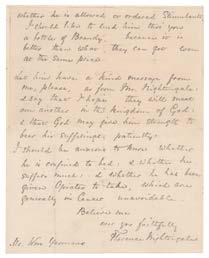 whether he is allowed or ordered Stimulants.
I should like to send him thro' you
a bottle of Brandy because it is
better than what they can get even
at the same price.
Let him have a kind message from
me, please, as from Mrs. Nightingale:
& say that I hope they will meet
one another in the Kingdom of God:
& that God may give him strength to
bear his sufferings patiently.
I should be anxious to know whether
he is confined to bed: & whether he
suffers much: & whether he has been
given Opiates to take, which are
generally in Cancer unavoidable.
Believe me
ever yrs faithfully
Florence Nightingale
Mr. Wm Yeomans